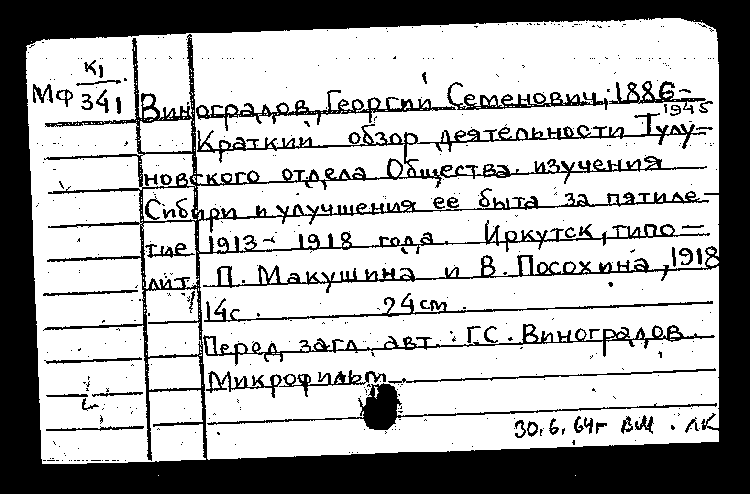 К1
МФ 341
Виноградов, Георгий Семенович, 1886-
1945
Краткий обзор деятельности Тулу-
новского отдела Общества изучения
Сибири и улучшения ее быта за пятиле-
тие 1913- 1918 года. Иркутск, типо-
лит. П. Макушина и В. Посохина, 1918
14с. 24см.
Перед загл. авт.: Г.С. Виноградов.
Микрофильм
30.6.64г ВМ. ЛК